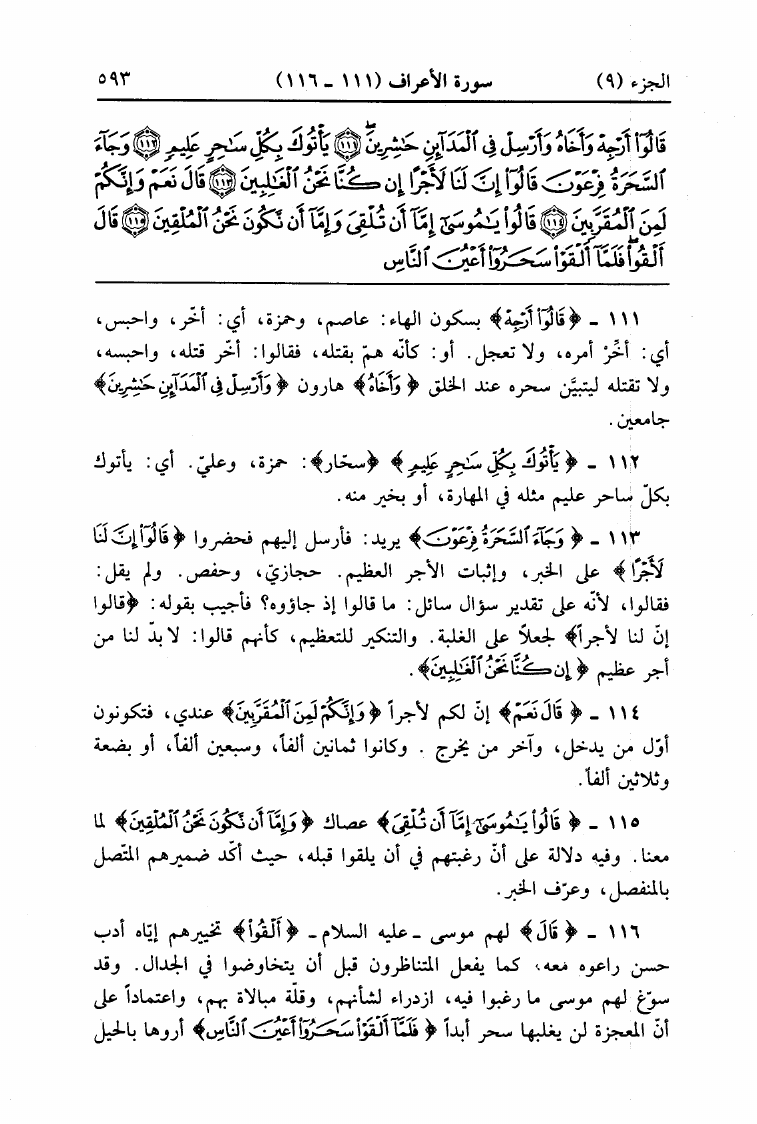 الجزء (٩) سورة الأعراف (١١١ ـ ١١٦) ٥٩٣
قَالُوٓا۟ أَرْجِهْ وَأَخَاهُ وَأَرْسِلْ فِى ٱلْمَدَآئِنِ حَٰشِرِينَ ﴿١١١﴾ يَأْتُوكَ بِكُلِّ سَٰحِرٍ عَلِيمٍ ﴿١١٢﴾ وَجَآءَ
ٱلسَّحَرَةُ فِرْعَوْنَ قَالُوٓا۟ إِنَّ لَنَا لَأَجْرًا إِن كُنَّا نَحْنُ ٱلْغَٰلِبِينَ ﴿١١٣﴾ قَالَ نَعَمْ وَإِنَّكُمْ
لَمِنَ ٱلْمُقَرَّبِينَ ﴿١١٤﴾ قَالُوا۟ يَٰمُوسَىٰٓ إِمَّآ أَن تُلْقِىَ وَإِمَّآ أَن نَّكُونَ نَحْنُ ٱلْمُلْقِينَ ﴿١١٥﴾ قَالَ
أَلْقُوا۟ فَلَمَّآ أَلْقَوْا۟ سَحَرُوٓا۟ أَعْيُنَ ٱلنَّاسِ
١١١ ـ ﴿قَالُوٓا۟ أَرْجِهْ﴾ بسكون الهاء: عاصم، وحمزة، أي: أخّر، واحبس،
أي: أخّرْ أمره، ولا تعجل. أو: كأنّه همّ بقتله، فقالوا: أخّر قتله، واحبسه،
ولا تقتله ليتبيَّن سحره عند الخلق ﴿وَأَخَاهُ﴾ هارون ﴿وَأَرْسِلْ فِى ٱلْمَدَآئِنِ حَٰشِرِينَ﴾
جامعين.
١١٢ ـ ﴿يَأْتُوكَ بِكُلِّ سَٰحِرٍ عَلِيمٍ﴾ ﴿سحّار﴾: حمزة، وعليّ. أي: يأتوك
بكلّ ساحر عليم مثله في المهارة، أو بخير منه.
١١٣ ـ ﴿وَجَآءَ ٱلسَّحَرَةُ فِرْعَوْنَ﴾ يريد: فأرسل إليهم فحضروا ﴿قَالُوٓا۟ إِنَّ لَنَا
لَأَجْرًا﴾ على الخبر، وإثبات الأجر العظيم. حجازيّ، وحفص. ولم يقل:
فقالوا، لأنّه على تقدير سؤال سائل: ما قالوا إذ جاؤوه؟ فأجيب بقوله: ﴿قالوا
إنّ لنا لأجراً﴾ لجعلاً على الغلبة. والتنكير للتعظيم، كأنهم قالوا: لا بدّ لنا من
أجر عظيم ﴿إِن كُنَّا نَحْنُ ٱلْغَٰلِبِينَ﴾.
١١٤ ـ ﴿قَالَ نَعَمْ﴾ إنّ لكم لأجراً ﴿وَإِنَّكُمْ لَمِنَ ٱلْمُقَرَّبِينَ﴾ عندي، فتكونون
أوّل من يدخل، وآخر من يخرج . وكانوا ثمانين ألفاً، وسبعين ألفاً، أو بضعة
وثلاثين ألفاً.
١١٥ ـ ﴿قَالُوا۟ يَٰمُوسَىٰٓ إِمَّآ أَن تُلْقِىَ﴾ عصاك ﴿وَإِمَّآ أَن نَّكُونَ نَحْنُ ٱلْمُلْقِينَ﴾ لما
معنا. وفيه دلالة على أنّ رغبتهم في أن يلقوا قبله، حيث أكّد ضميرهم المتّصل
بالمنفصل، وعرّف الخبر.
١١٦ ـ ﴿قَالَ﴾ لهم موسى ـ عليه السلام ـ ﴿أَلْقُوا۟﴾ تخييرهم إيّاه أدب
حسن راعوه معه، كما يفعل المتناظرون قبل أن يتخاوضوا في الجدال. وقد
سوّغ لهم موسى ما رغبوا فيه، ازدراء لشأنهم، وقلّة مبالاة بهم، واعتماداً على
أنّ المعجزة لن يغلبها سحر أبداً ﴿فَلَمَّآ أَلْقَوْا۟ سَحَرُوٓا۟ أَعْيُنَ ٱلنَّاسِ﴾ أروها بالحيل